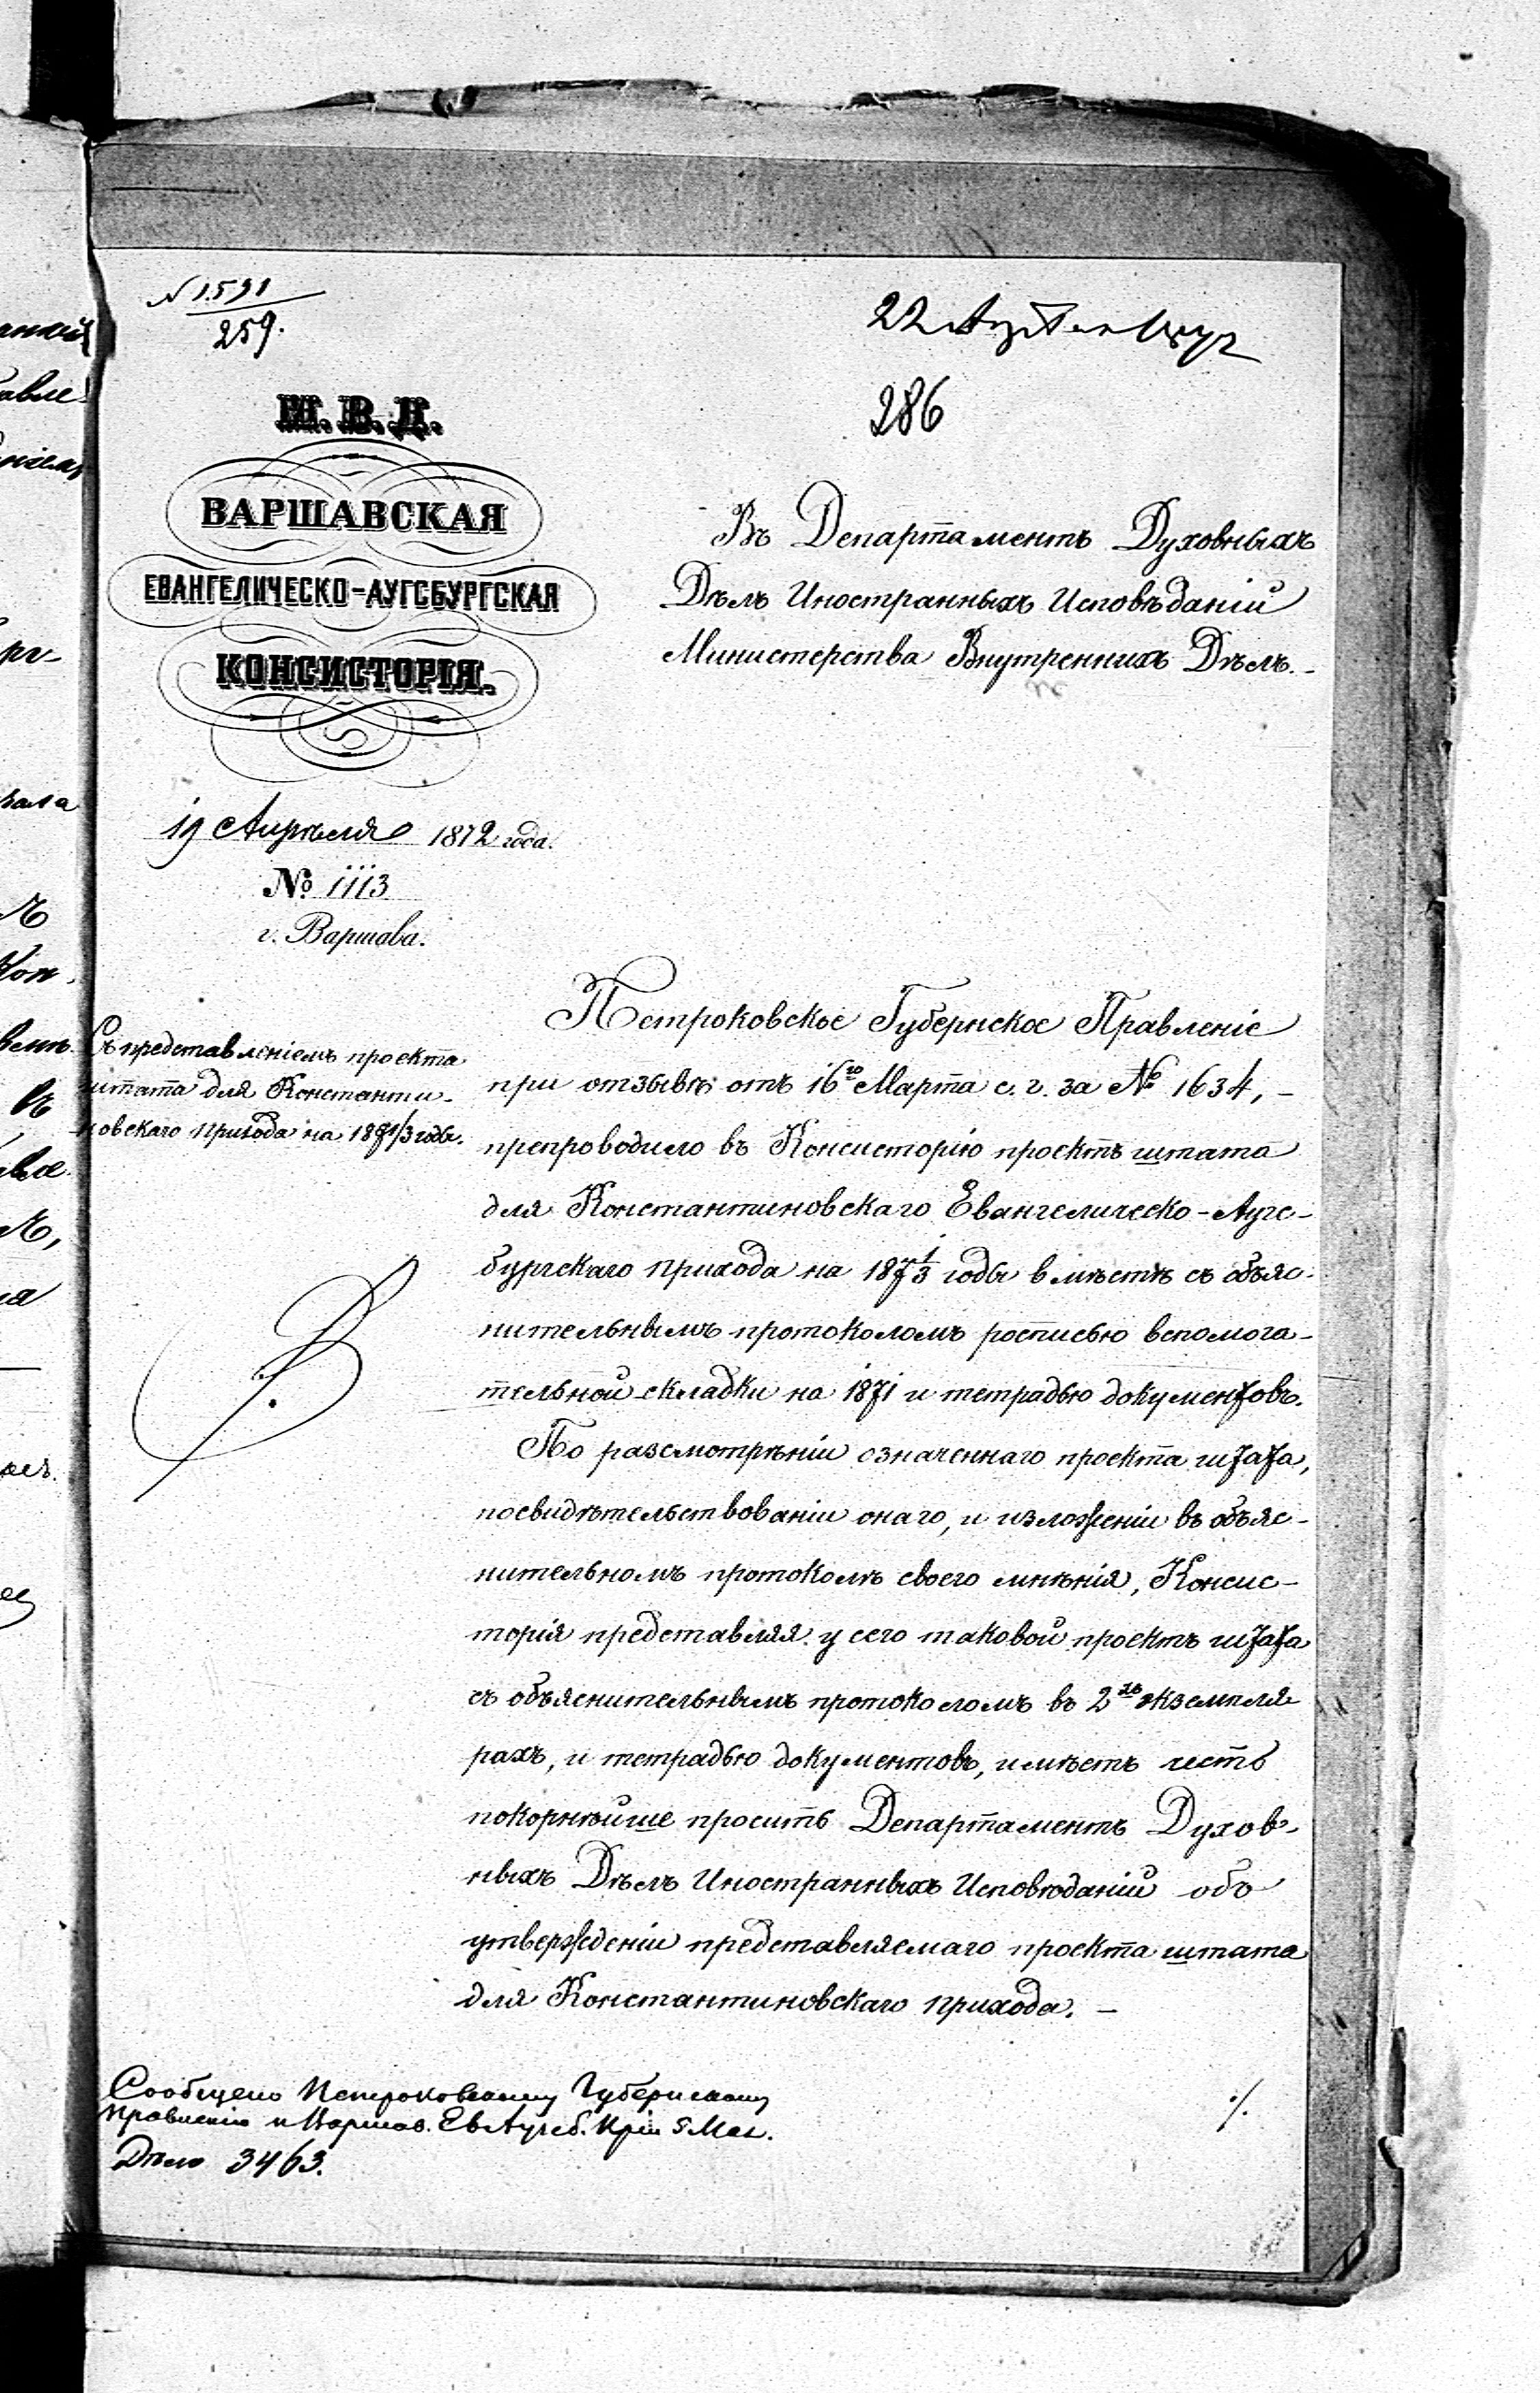 № 1591
259.
22 Апреля 1872
286
М. В. Д.
ВАРШАВСКАЯ
ЕВАНГЕЛИЧЕСКО-АУГСБУРГСКАЯ
КОНСИСТОРІЯ.
19 Апрѣля 1872 года.
№ 1113
г. Варшава.
Въ Департаментъ Духовныхъ
Дѣлъ Иностранныхъ Исповѣданій
Министерства Внутреннихъ Дѣлъ.-
Съ представленіемъ проекта
штата для Константи-
новскаго прихода на 1871/3 годы.
Петроковское Губернское Правленіе
при отзывѣ отъ 16го Марта с. г. за № 1634,-
препроводило въ Консисторію проектъ штата
для Константиновскаго Евангелическо-Аугс-
бургскаго прихода на 1871/3 годы вмѣстѣ съ объяс-
нительнымъ протоколомъ росписью вспомога-
тельной складки на 1871 и тетрадью документовъ.
По разсмотрѣніи означеннаго проекта штата,
посвидѣтельствованіи онаго, и изложеніи въ объяс-
нительномъ протоколѣ своего мнѣнія, Консис-
торія представляя у сего таковой проектъ штата
съ объяснительнымъ протоколомъ въ 2хъ экземпля
рахъ, и тетрадью документовъ, имѣетъ честь
покорнѣйше просить Департаментъ Духов-
ныхъ Дѣлъ Иностранныхъ Исповѣданій объ
утвержденіи представляемаго проекта штата
для Константиновскаго прихода.-
Сообщено Петроковскому Губернскому
Правленію и Варшав. Ев Аугсб. Кріи 5 Мая.
Дѣло 3463.
./.